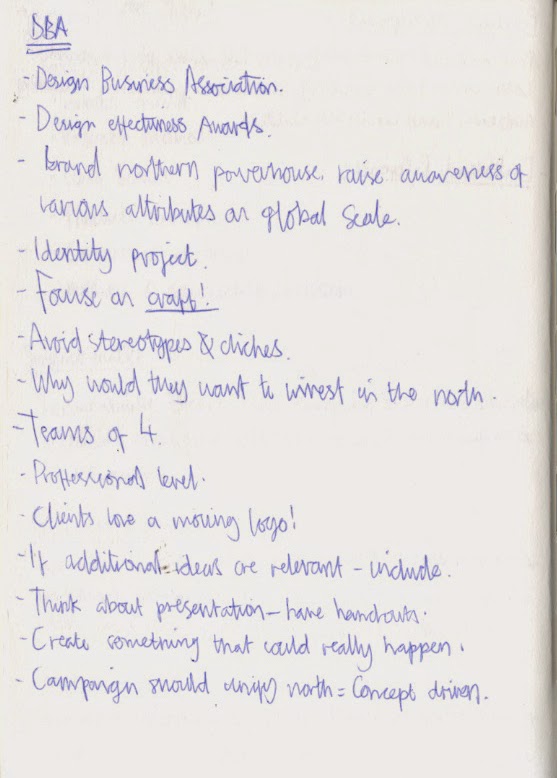 DBA
- Design Business Association.
- Design effectiveness Awards.
- Brand northern powerhouse, raise awareness of
various attributes on global scale.
- Identity project.
- Focuse on craft!
- Avoid stereotypes & cliches.
- Why would they want to invest in the north.
- Teams of 4.
- Proffessional level.
- Clients love a moving logo!
- If additional ideas are relevant - include.
- Think about presentation - have handouts.
- Create something that could really happen.
- Campaign should unify north = Concept driven.